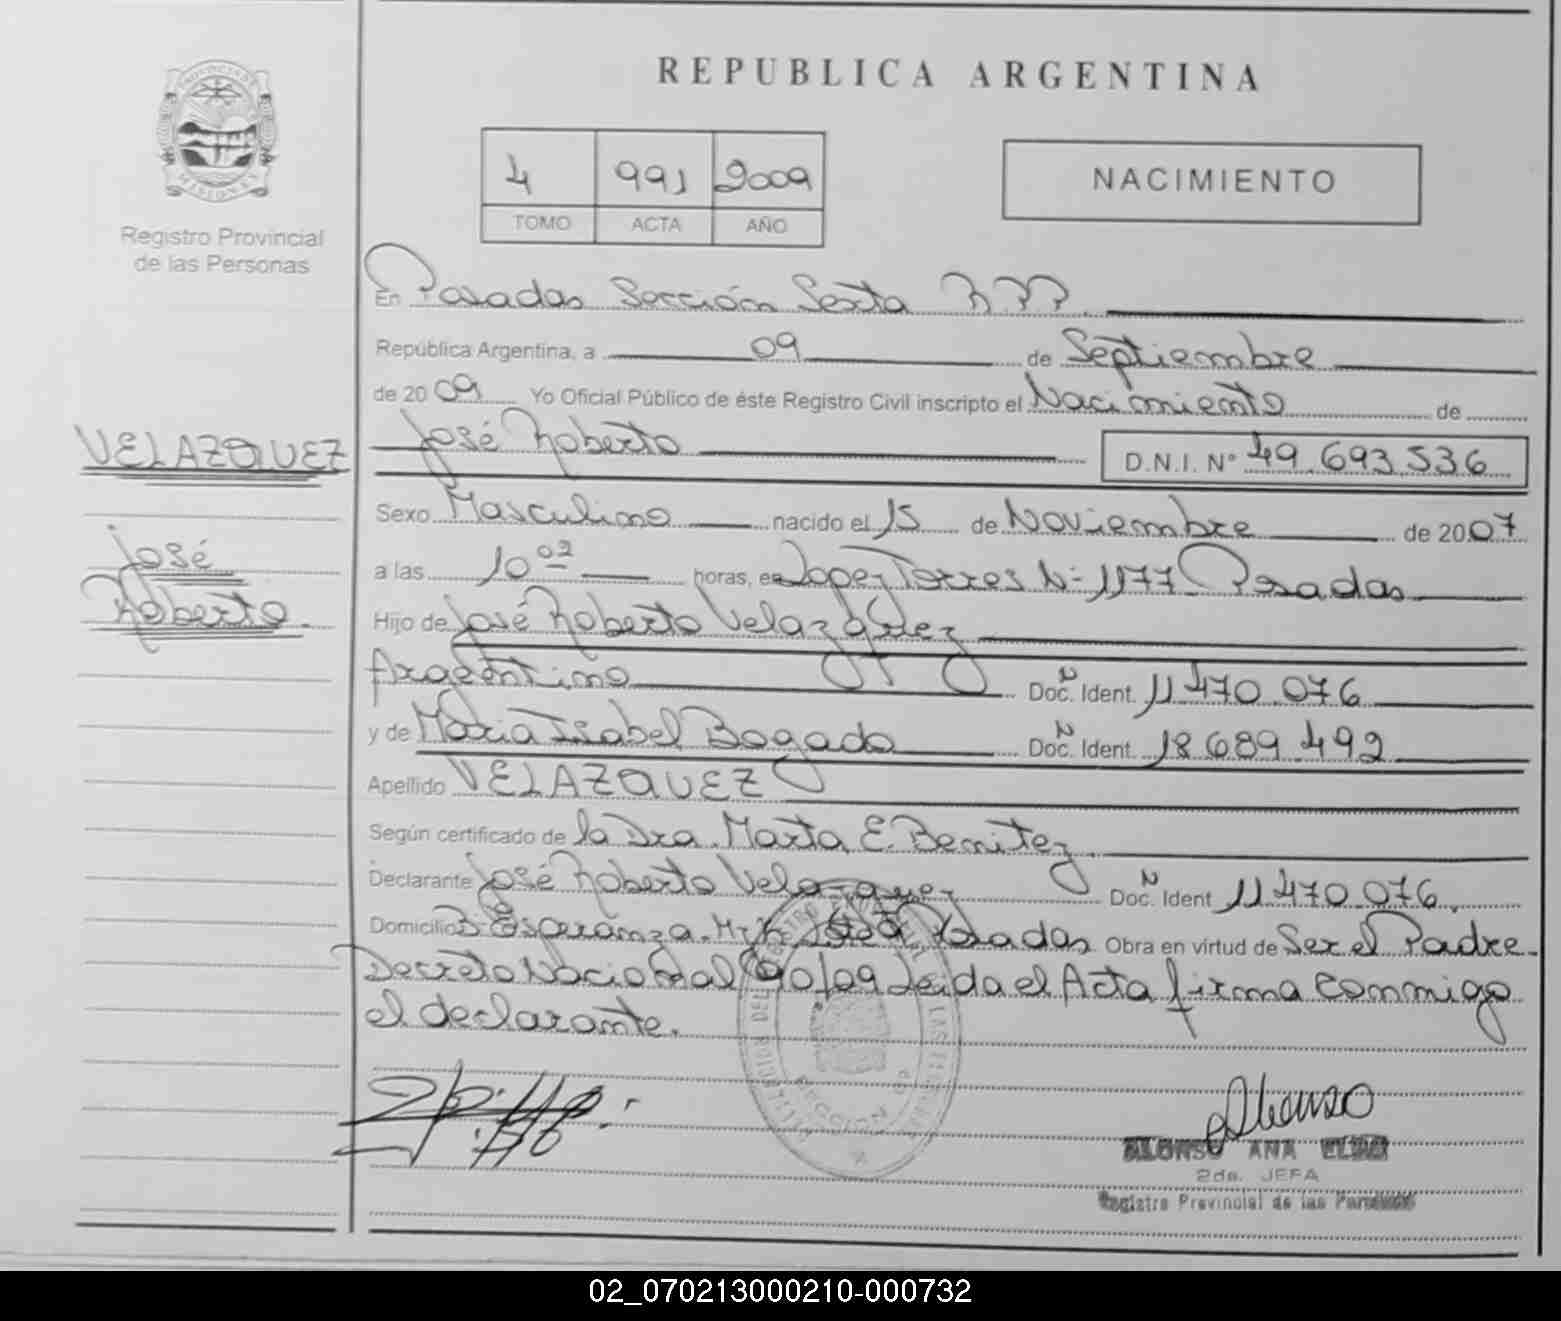 REPUBLICA ARGENTINA
PROVINCIA DE
MISIONES
Registro Provincial
de las Personas
4 991 2009
TOMO ACTA AÑO
NACIMIENTO
En Posadas Sección Sexta
República Argentina, a 09 de Septiembre
de 2009 Yo Oficial Público de éste Registro Civil inscripto el Nacimiento de
VELAZQUEZ
José Roberto D.N.I. N° 49.693.536
Sexo Masculino nacido el 15 de Noviembre de 2007
José
Roberto.
a las 10 02 horas, en Lopez Torres N° 1177 Posadas
Hijo de José Roberto Velazquez
Argentino Doc. Ident. 11.470.076
y de Maria Isabel Bogado Doc. Ident. 18.689.492
Apellido VELAZQUEZ
Según certificado de la Dra. Marta E. Benitez
Declarante José Roberto Velazquez Doc. Ident 11.470.076.
Domicilio B° Esperanza. Posadas Obra en virtud de Ser el Padre
Decreto Nacional 90/09 Leida el Acta firma conmigo
el declarante.
Alonso
ALONSO ANA
2da. JEFA
Registro Provincial de las Personas
02_070213000210-000732